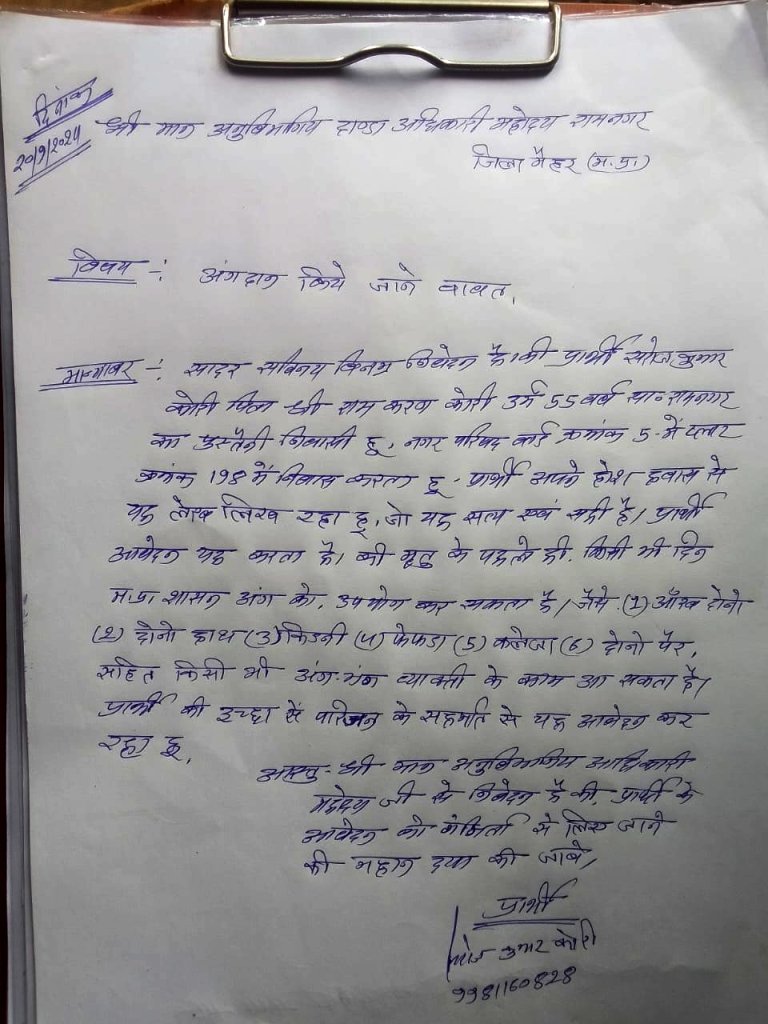 दिनांक
20/9/2024
श्री मान अनुविभागिय दाण्डा अधिकारी महोदय रामनगर
जिला मैहर (म.प्र.)
विषय -: अंगदान किये जाने वावत,
मान्यवर -: सादर सविनय विनम्र निवेदन है। की प्रार्थी सरोज कुमार
कोरी पिता श्री राम करण कोरी उर्म 55 वर्ष सा० रामनगर
का पुस्तैनी निवासी हू, नगर परिषद वार्ड क्रमांक 5- में प्लाट
क्रमांक 198 में निवास करता हू - प्रार्थी अपने होश हवास से
यह लेख लिख रहा हू, जो यह सत्य एवं सही है। प्रार्थी
आवेदन यह करता है। की मृतु के पहले ही. किसी भी दिन
म.प्र. शासन अंग को, उपयोग कर सकता है। जैसे (1) आँख दोनो
(2) दोनो हाथ (3) किडनी (4) फेफडा (5) कलेजा (6) दोनो पैर,
सहित किसी भी अंग-भंग व्यक्ती के काम आ सकता है।
प्रार्थी की इच्छा से परिजन के सहमति से यह आवेदन कर
रहा हू,
अस्तु - श्री मान अनुविभागिय अधिकारी
महोदय जी से निवेदन है की, प्रार्थी के
आवेदन को गंभिर्ता से लिए जाने
की महान दया की जावे,
प्रार्थी
सरोज कुमार कोरी
9981160828